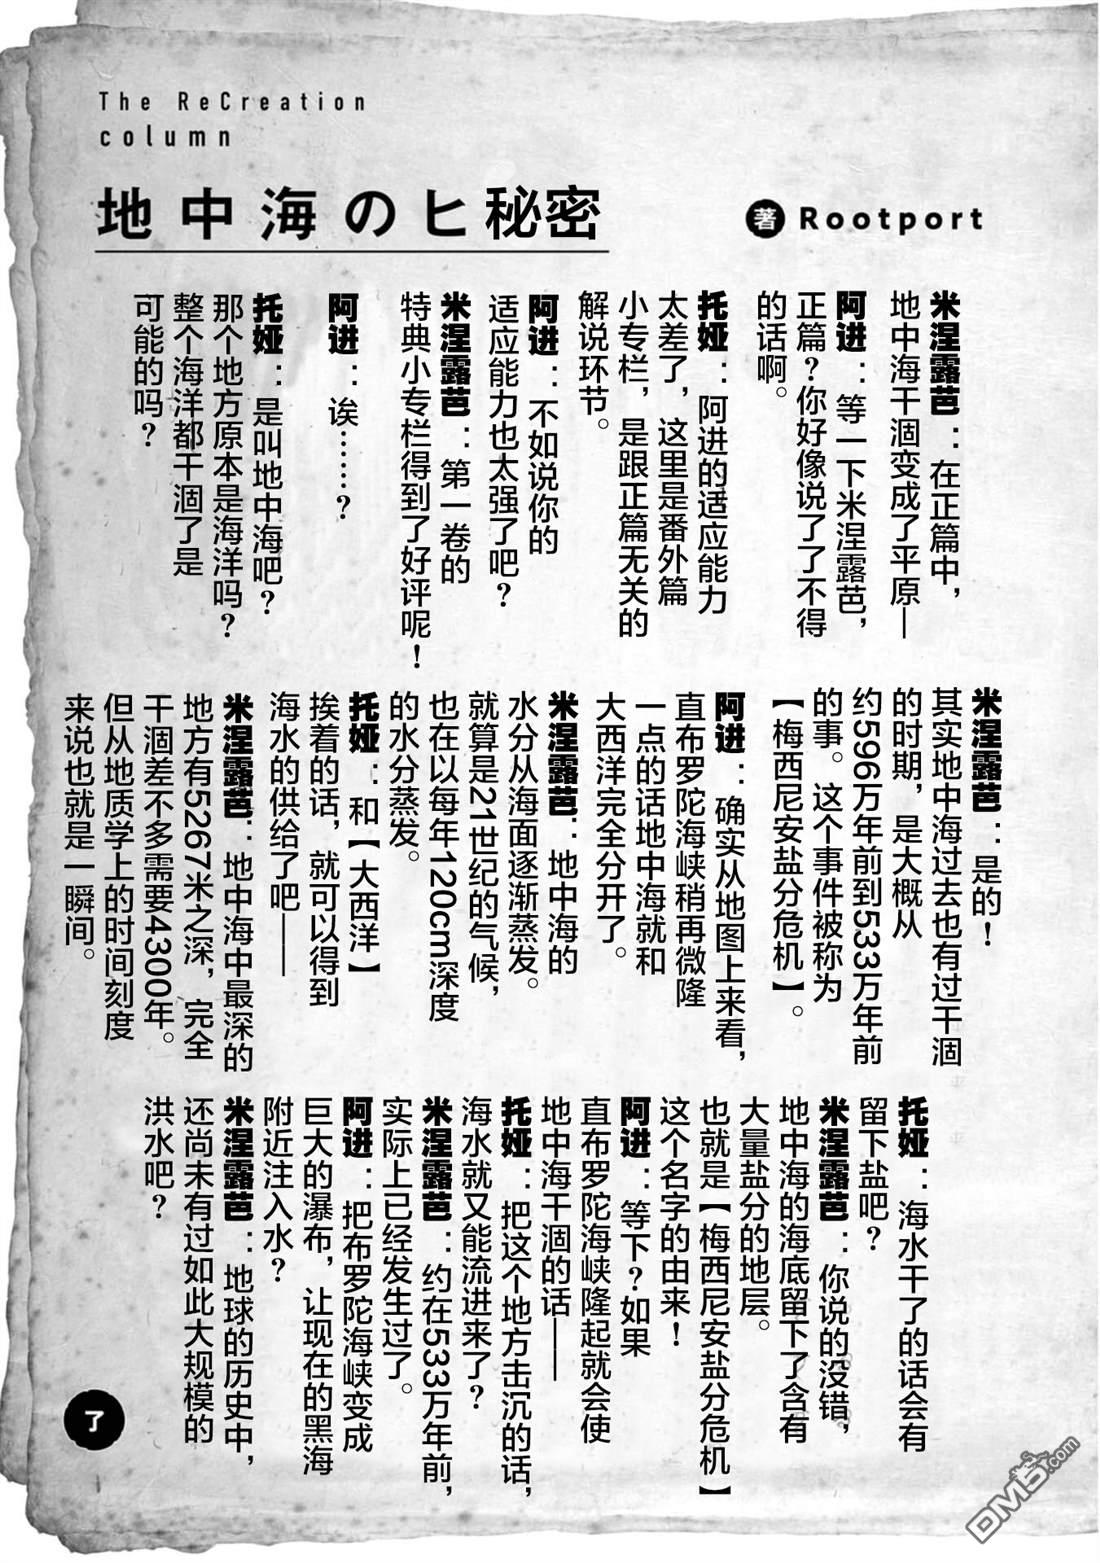 The ReCreation
column
地中海のヒ秘密
著 Rootport
米涅露芭：在正篇中，
地中海干涸变成了平原—
阿进：等一下米涅露芭，
正篇？你好像说了了不得
的话啊。
托娅：阿进的适应能力
太差了，这里是番外篇
小专栏，是跟正篇无关的
解说环节。
阿进：不如说你的
适应能力也太强了吧？
米涅露芭：第一卷的
特典小专栏得到了好评呢！
阿进：诶……？
托娅：是叫地中海吧？
那个地方原本是海洋吗？
整个海洋都干涸了是
可能的吗？
米涅露芭：是的！
其实地中海过去也有过干涸
的时期，是大概从
约596万年前到533万年前
的事。这个事件被称为
【梅西尼安盐分危机】。
阿进：确实从地图上来看，
直布罗陀海峡稍再微隆
一点的话地中海就和
大西洋完全分开了。
米涅露芭：地中海的
水分从海面逐渐蒸发。
就算是21世纪的气候，
也在以每年120cm深度
的水分蒸发。
托娅：和【大西洋】
挨着的话，就可以得到
海水的供给了吧——
米涅露芭：地中海中最深的
地方有5267米之深，完全
干涸差不多需要4300年。
但从地质学上的时间刻度
来说也就是一瞬间。
托娅：海水干了的话会有
留下盐吧？
米涅露芭：你说的没错，
地中海的海底留下了含有
大量盐分的地层。
也就是【梅西尼安盐分危机】
这个名字的由来！
阿进：等下？如果
直布罗陀海峡隆起就会使
地中海干涸的话——
托娅：把这个地方击沉的话，
海水就又能流进来了？
米涅露芭：约在533万年前，
实际上已经发生过了。
阿进：把布罗陀海峡变成
巨大的瀑布，让现在的黑海
附近注入水？
米涅露芭：地球的历史中，
还尚未有过如此大规模的
洪水吧？
了
DM5.com